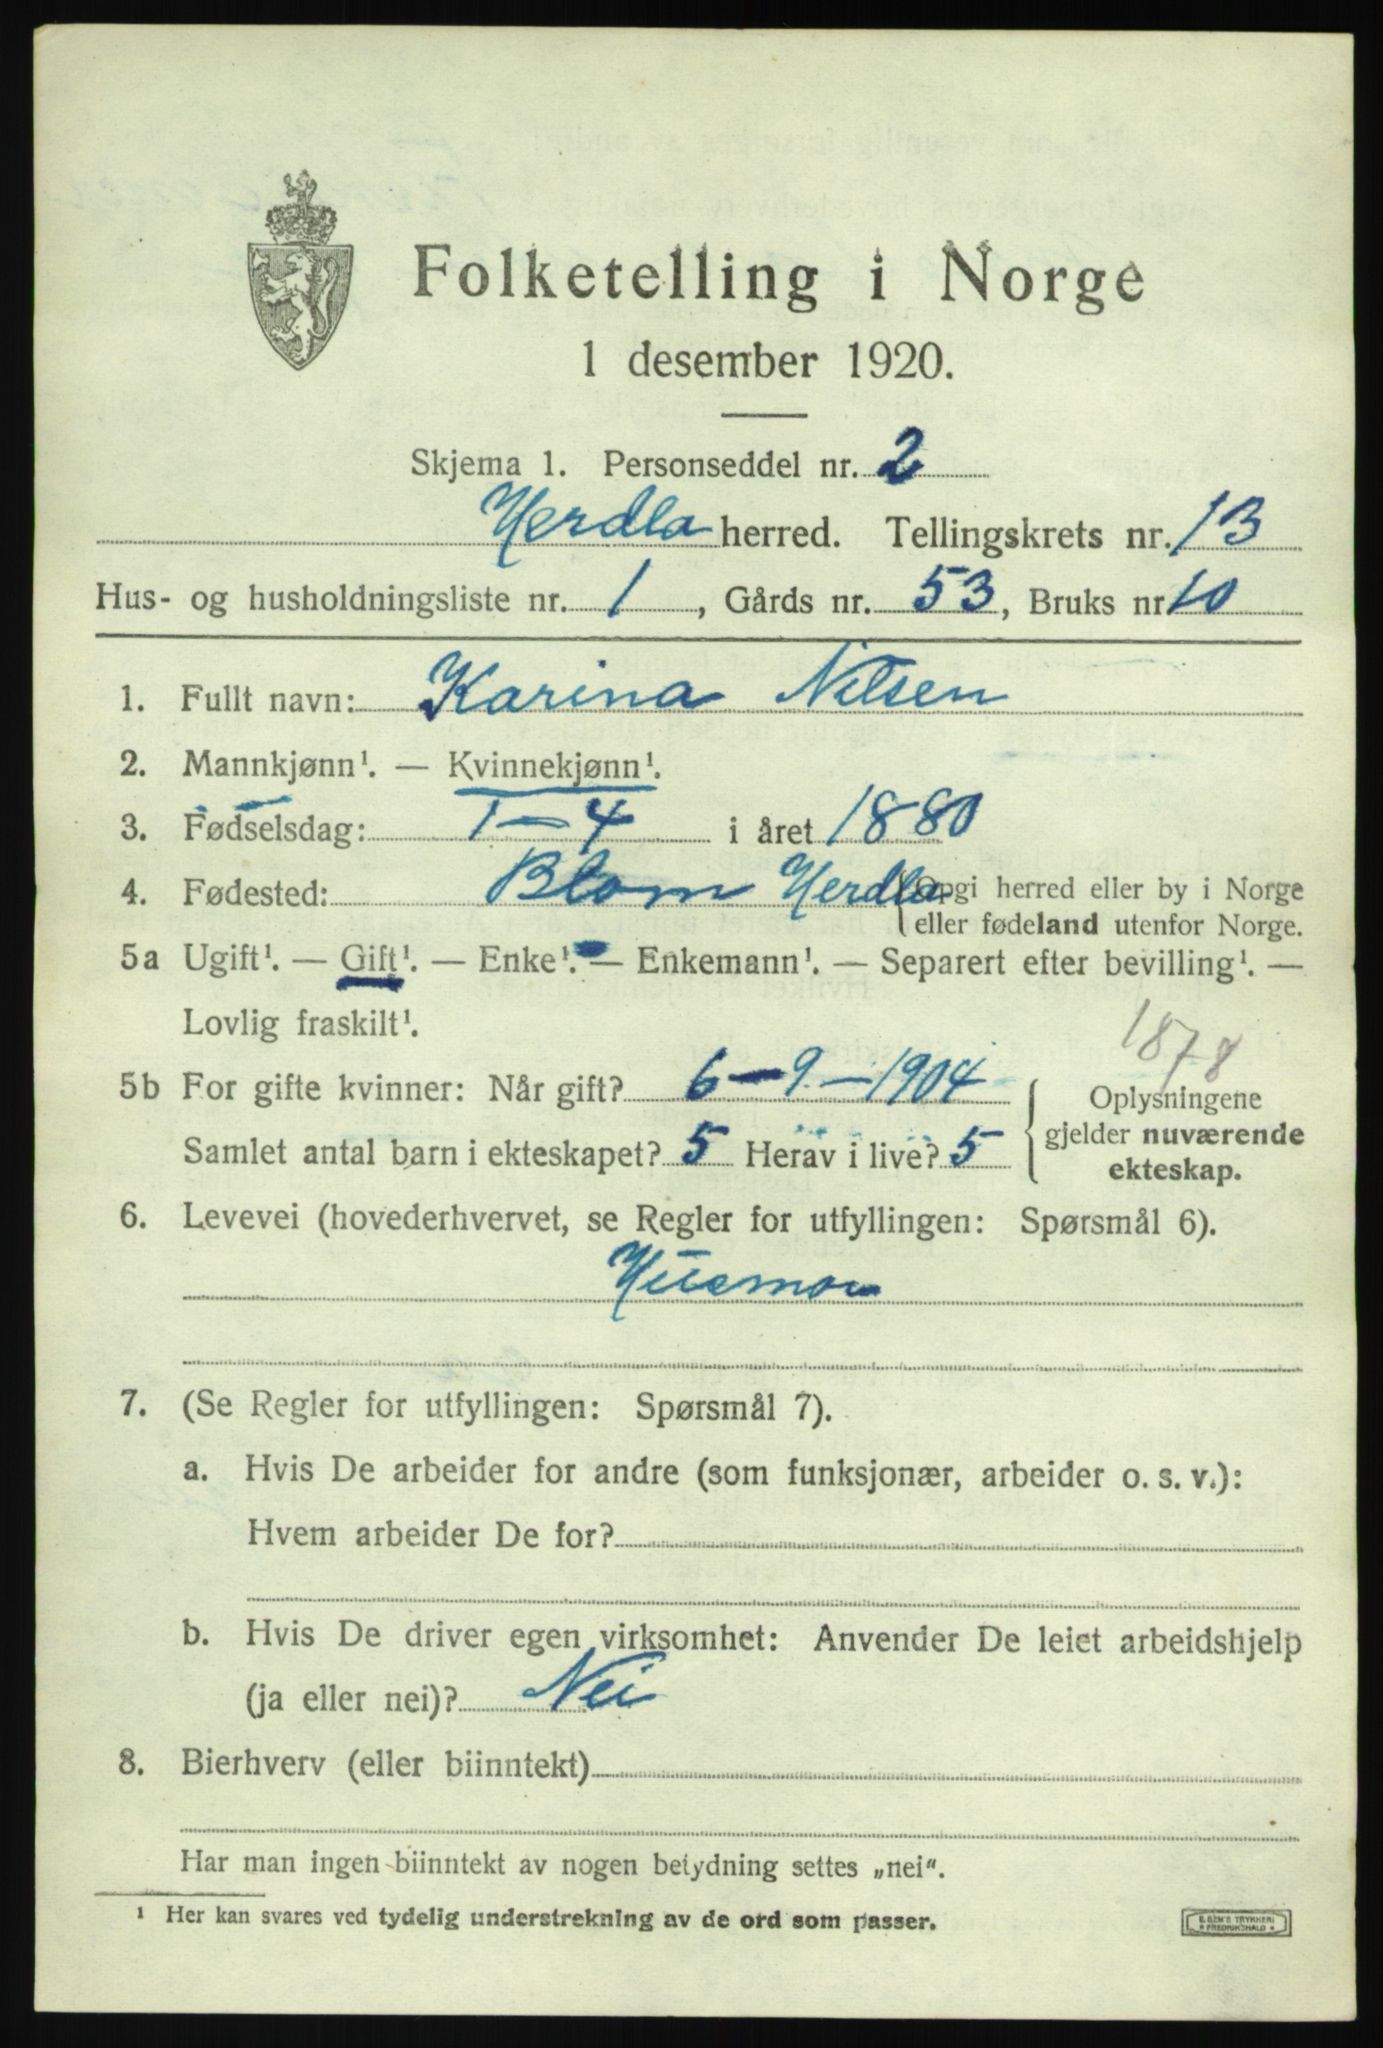 Folketelling i Norge
1 desember 1920.
Skjema 1. Personseddel nr. 2
Herdla herred. Tellingskrets nr. 13
Hus- og husholdningsliste nr. 1, Gårds nr. 53, Bruks nr 10
1. Fullt navn: Karina Nilsen
2. Mannkjønn¹. — Kvinnekjønn¹.
3. Fødselsdag: 1 — 4 i året 1880
4. Fødested: Blom Herdla {Opgi herred eller by i Norge
eller fødeland utenfor Norge.
5a Ugift¹. — Gift¹. — Enke¹. — Enkemann¹. — Separert efter bevilling¹. —
Lovlig fraskilt¹.
1878
5b For gifte kvinner: Når gift? 6 — 9 — 1904
Samlet antal barn i ekteskapet? 5 Herav i live? 5
Oplysningene
gjelder nuværende
ekteskap.
6. Levevei (hovederhvervet, se Regler for utfyllingen: Spørsmål 6).
Husmor
7. (Se Regler for utfyllingen: Spørsmål 7).
a. Hvis De arbeider for andre (som funksjonær, arbeider o. s. v.):
Hvem arbeider De for?
b. Hvis De driver egen virksomhet: Anvender De leiet arbeidshjelp
(ja eller nei)? Nei
8. Bierhverv (eller biinntekt)
Har man ingen biinntekt av nogen betydning settes „nei“.
¹ Her kan svares ved tydelig understrekning av de ord som passer.
TRYKKERI
FREDRIKSHALD